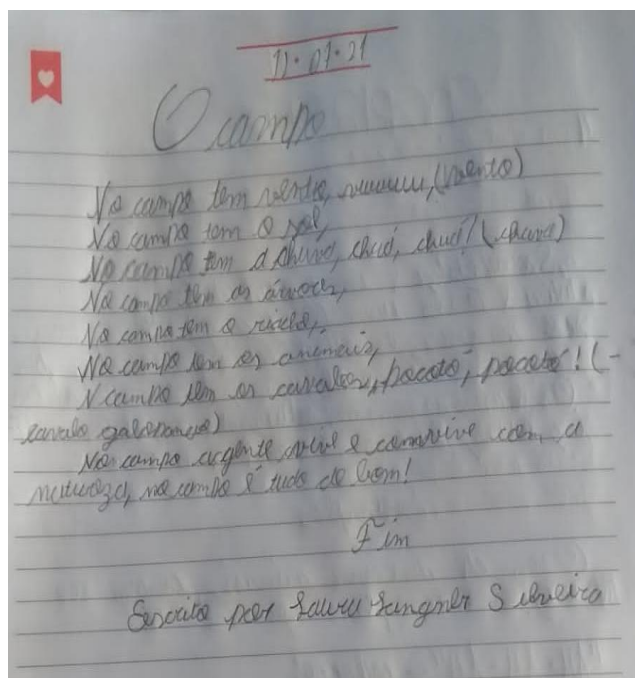 11.01.21
O campo
No campo tem vento, vuuuuu, (vento)
No campo tem o sol,
No campo tem a chuva, chuá, chuá! (chuva)
No campo tem as árvores,
No campo tem o riacho,
No campo tem os animais,
N campo tem os cavalos, pocotó, pocotó! (-
cavalo galopando)
No campo agente vive e convive com a
natureza, no campo é tudo de bom!
Fim
Escrito por Silveira